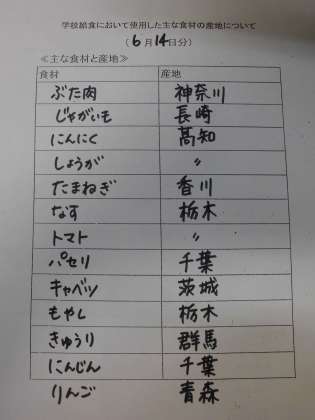 学校給食において使用した主な食材の産地について
(6月14日分)
≪主な食材と産地≫
食材 産地
ぶた肉 神奈川
じゃがいも 長崎
にんにく 高知
しょうが 〃
たまねぎ 香川
なす 栃木
トマト 〃
パセリ 千葉
キャベツ 茨城
もやし 栃木
きゅうり 群馬
にんじん 千葉
りんご 青森